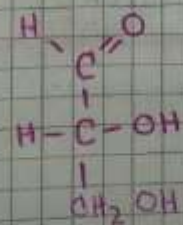 H O
C
H-C-OH
CH₂OH